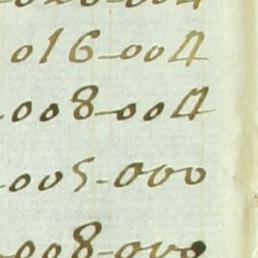 016-004
-008-004
-005-000
-008-000